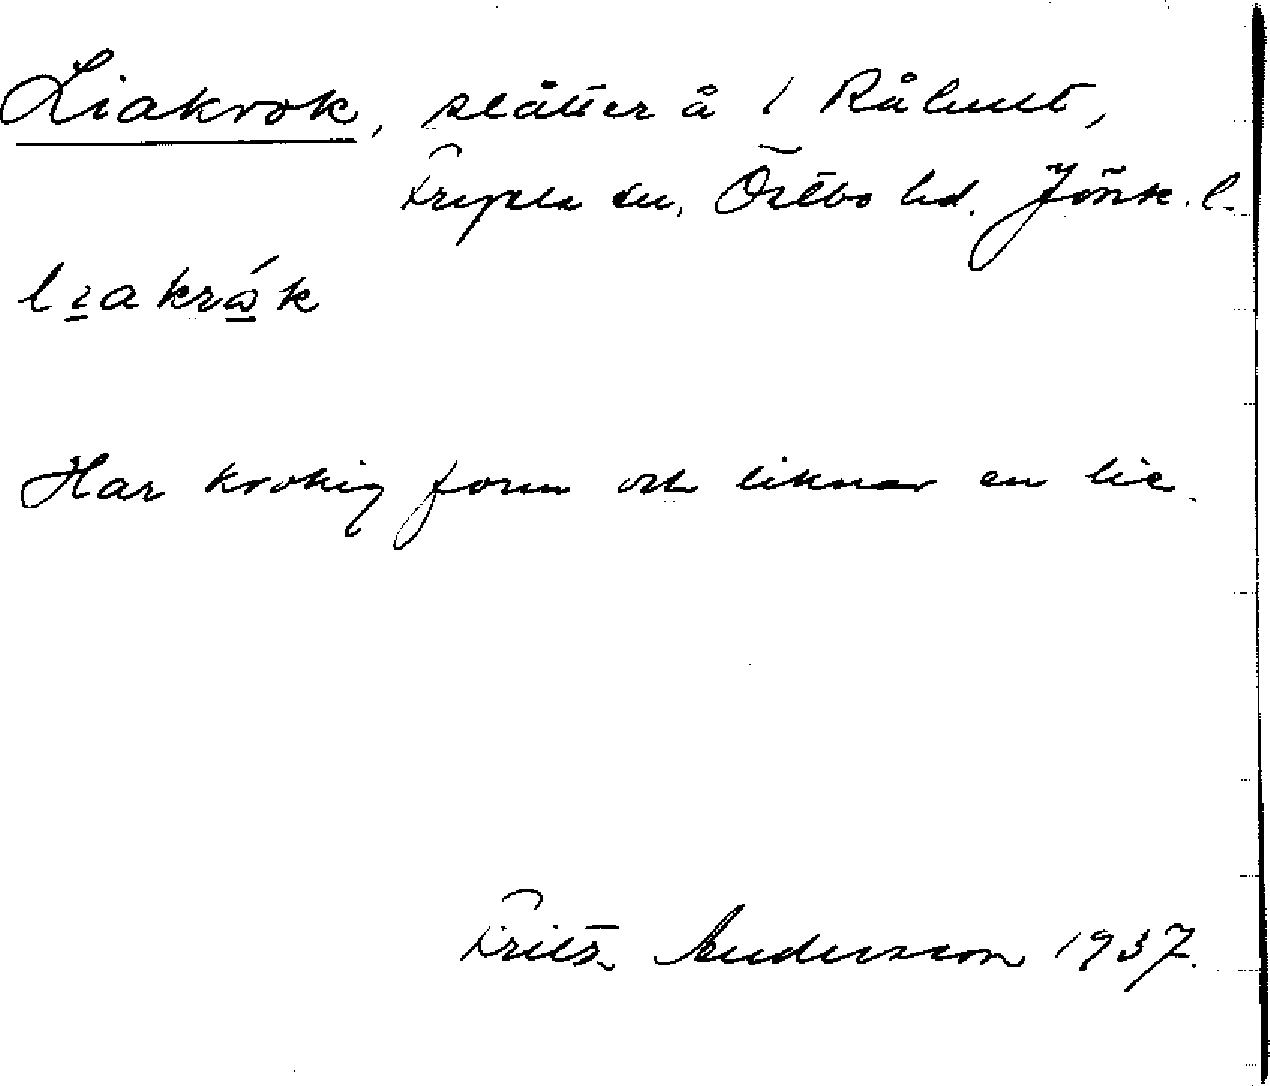 Liakrok, slåtter å i Råhult,
Fryele sn, Östbo hd. Jönk. l.
liakrók
Har krokig form och liknar en lie.
Fritz Andersson 1937.